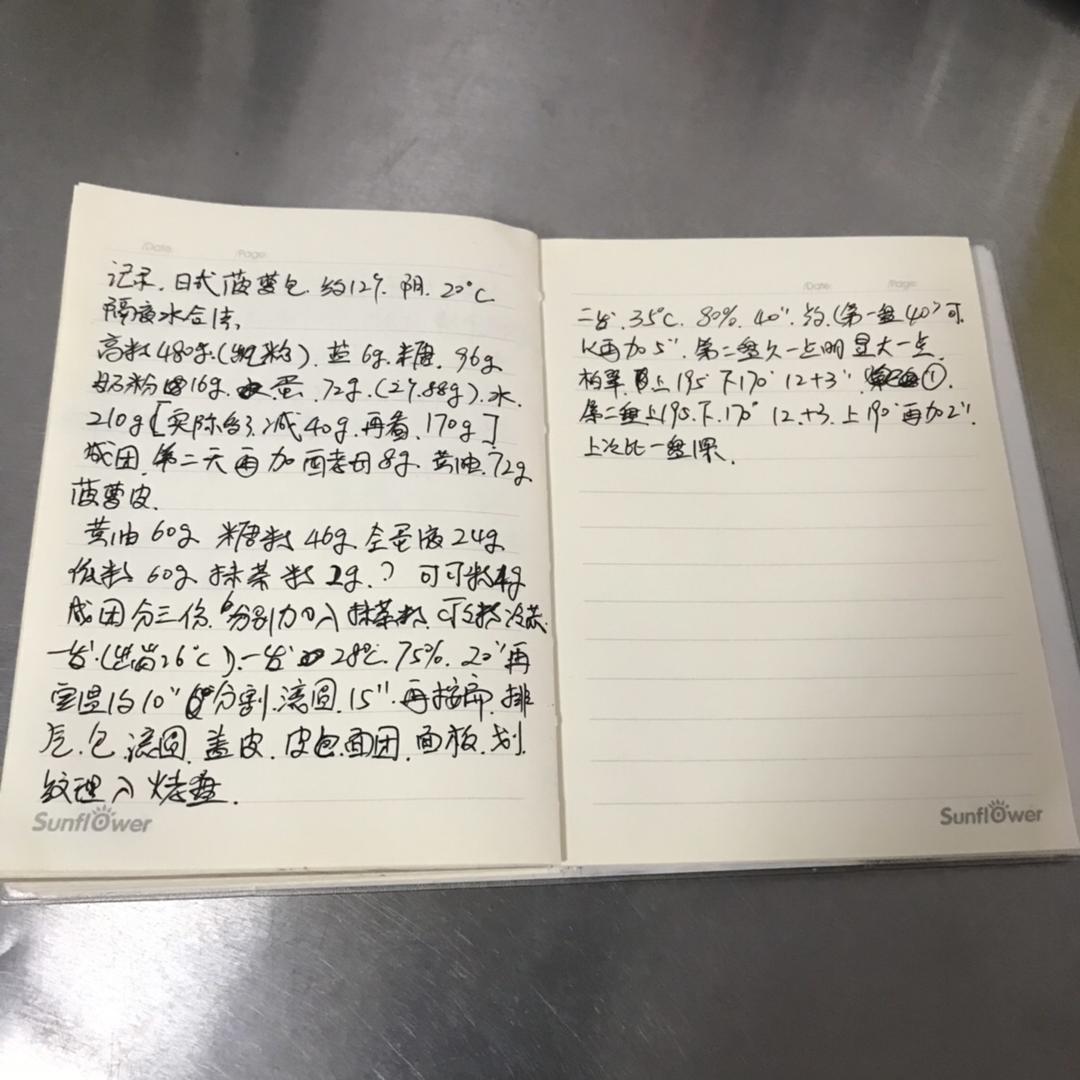 /Date: /Page:
记录.日式菠萝包.约12个.阴.20°C
隔夜水合法,
高粉480g.( ).盐6g.糖.96g
奶粉16g. 蛋.72g.(2个.88g).水.
210g[实际 减40g.再看.170g]
成团.第二天再加酵母8g.黄油.72g
菠萝皮.
黄油60g 糖粉46g.全蛋液24g
低粉60g 抹茶粉2g.? 可可粉4g
成团分三份.分别加入抹茶粉.可可粉冷藏.
一发.(出缸26°C).一发 28℃.75%.20"再
室温约10"分割.滚圆.15".再按扁.排
气.包.滚圆.盖皮.皮包面团.面板.划.
纹理入烤盘.
Sunflower
/Date: /Page:
二发.35℃.80%.40".约.(第一盘40')可
以再加5".第二盘久一点明显大一点.
柏翠.上195°下170° 12+3" ①.
第二盘上195.下.170° 12.+3.上190°再加2"!
上次比一盘 .
Sunflower